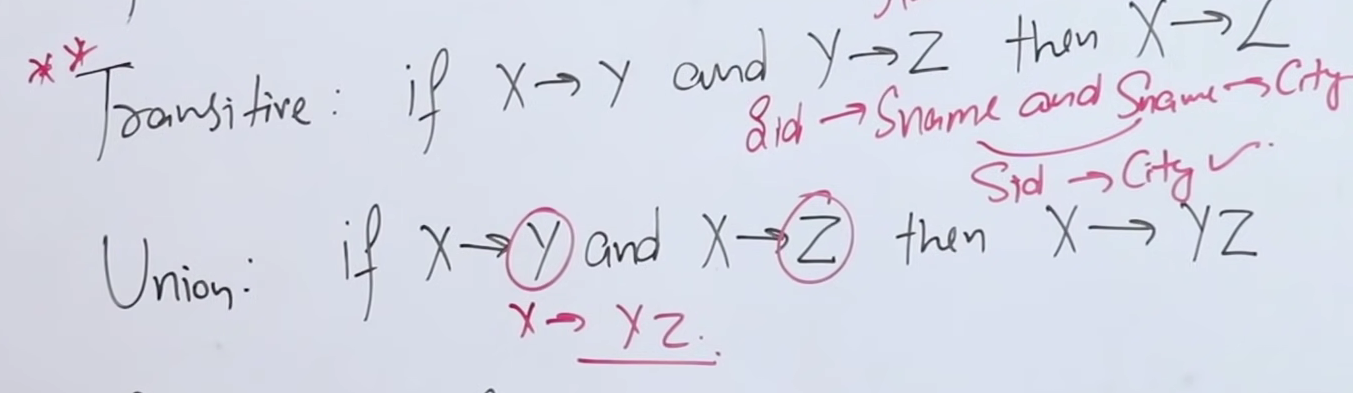 ** Transitive: if X→Y and Y→Z then X→Z
Sid → Sname and Sname → City
Sid → City ✓
Union: if X→Y and X→Z then X→YZ
X→ YZ.